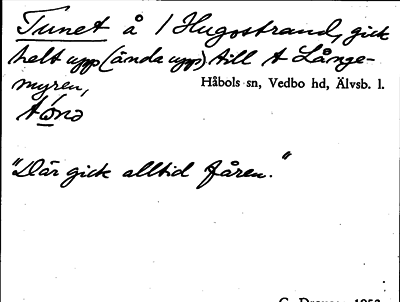 Tunet å / Hugostrand, gick
helt upp (ända upp) till t Långe-
myren,
Håbols sn, Vedbo hd, Älvsb. l.
"Där gick alltid fåren."